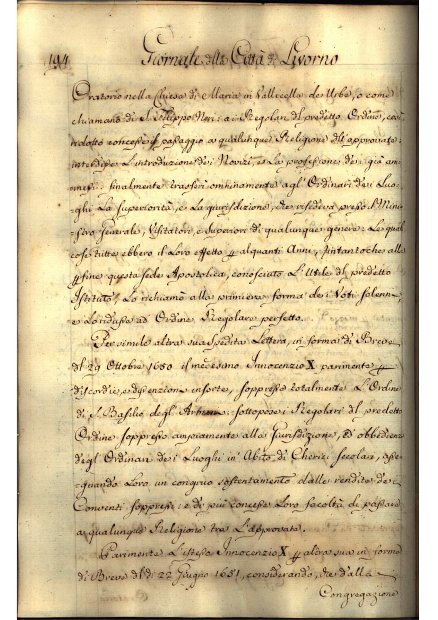 194 Giornale della Città di Livorno
Oratorio nella Chiesa di Maria in Vallicella de Urbe, o come
chiamano di S. Filippo Neri: a i Regolari del predetto Ordine, così
ridotto concesse il passaggio a qualunque Religione dell'approvate:
interdisse L'introduzione de i Novizi, e La professione de i già am-
messi: finalmente trasferì onninamente agl'Ordinari de i Luo-
ghi La superiorità, e La giurisdizione, che risedeva presso Il Mini-
stro Generale, Visitatori, e Superiori di qualunque genere. Le quali
cose tutte ebbero il Loro effetto per alquanti Anni, fintantoche alla
per fine questa Sede Apostolica, conosciuto L'Utile del predetto
Istituto, Lo richiamò alla primiera forma de i Voti Solenni,
e Lo ridusse ad Ordine Regolare perfetto.
Per simile altra sua spedita Lettera, in forma di Breve
del 29 Ottobre 1650 il medesimo Innocenzio X parimente per
discordie, e dissenzioni insorte, soppresse totalmente L'Ordine
di S. Basilio degl'Armeni: sottopose i Regolari del predetto
Ordine soppresso ampiamente alla Giurisdizione, ed obbedienza
degl'Ordinari de i Luoghi in Abito di Cherici Secolari, asse-
gnando Loro un congruo sostentamento dalle rendite de i
Conventi soppressi: e di più concesse Loro facoltà di passare
a qualunque Religione tra L'approvate.
Parimente L'istesso Innocenzio X per altra sua in forma
di Breve del dì 22 Giugno 1651, considerando, che dalla
Congregazione